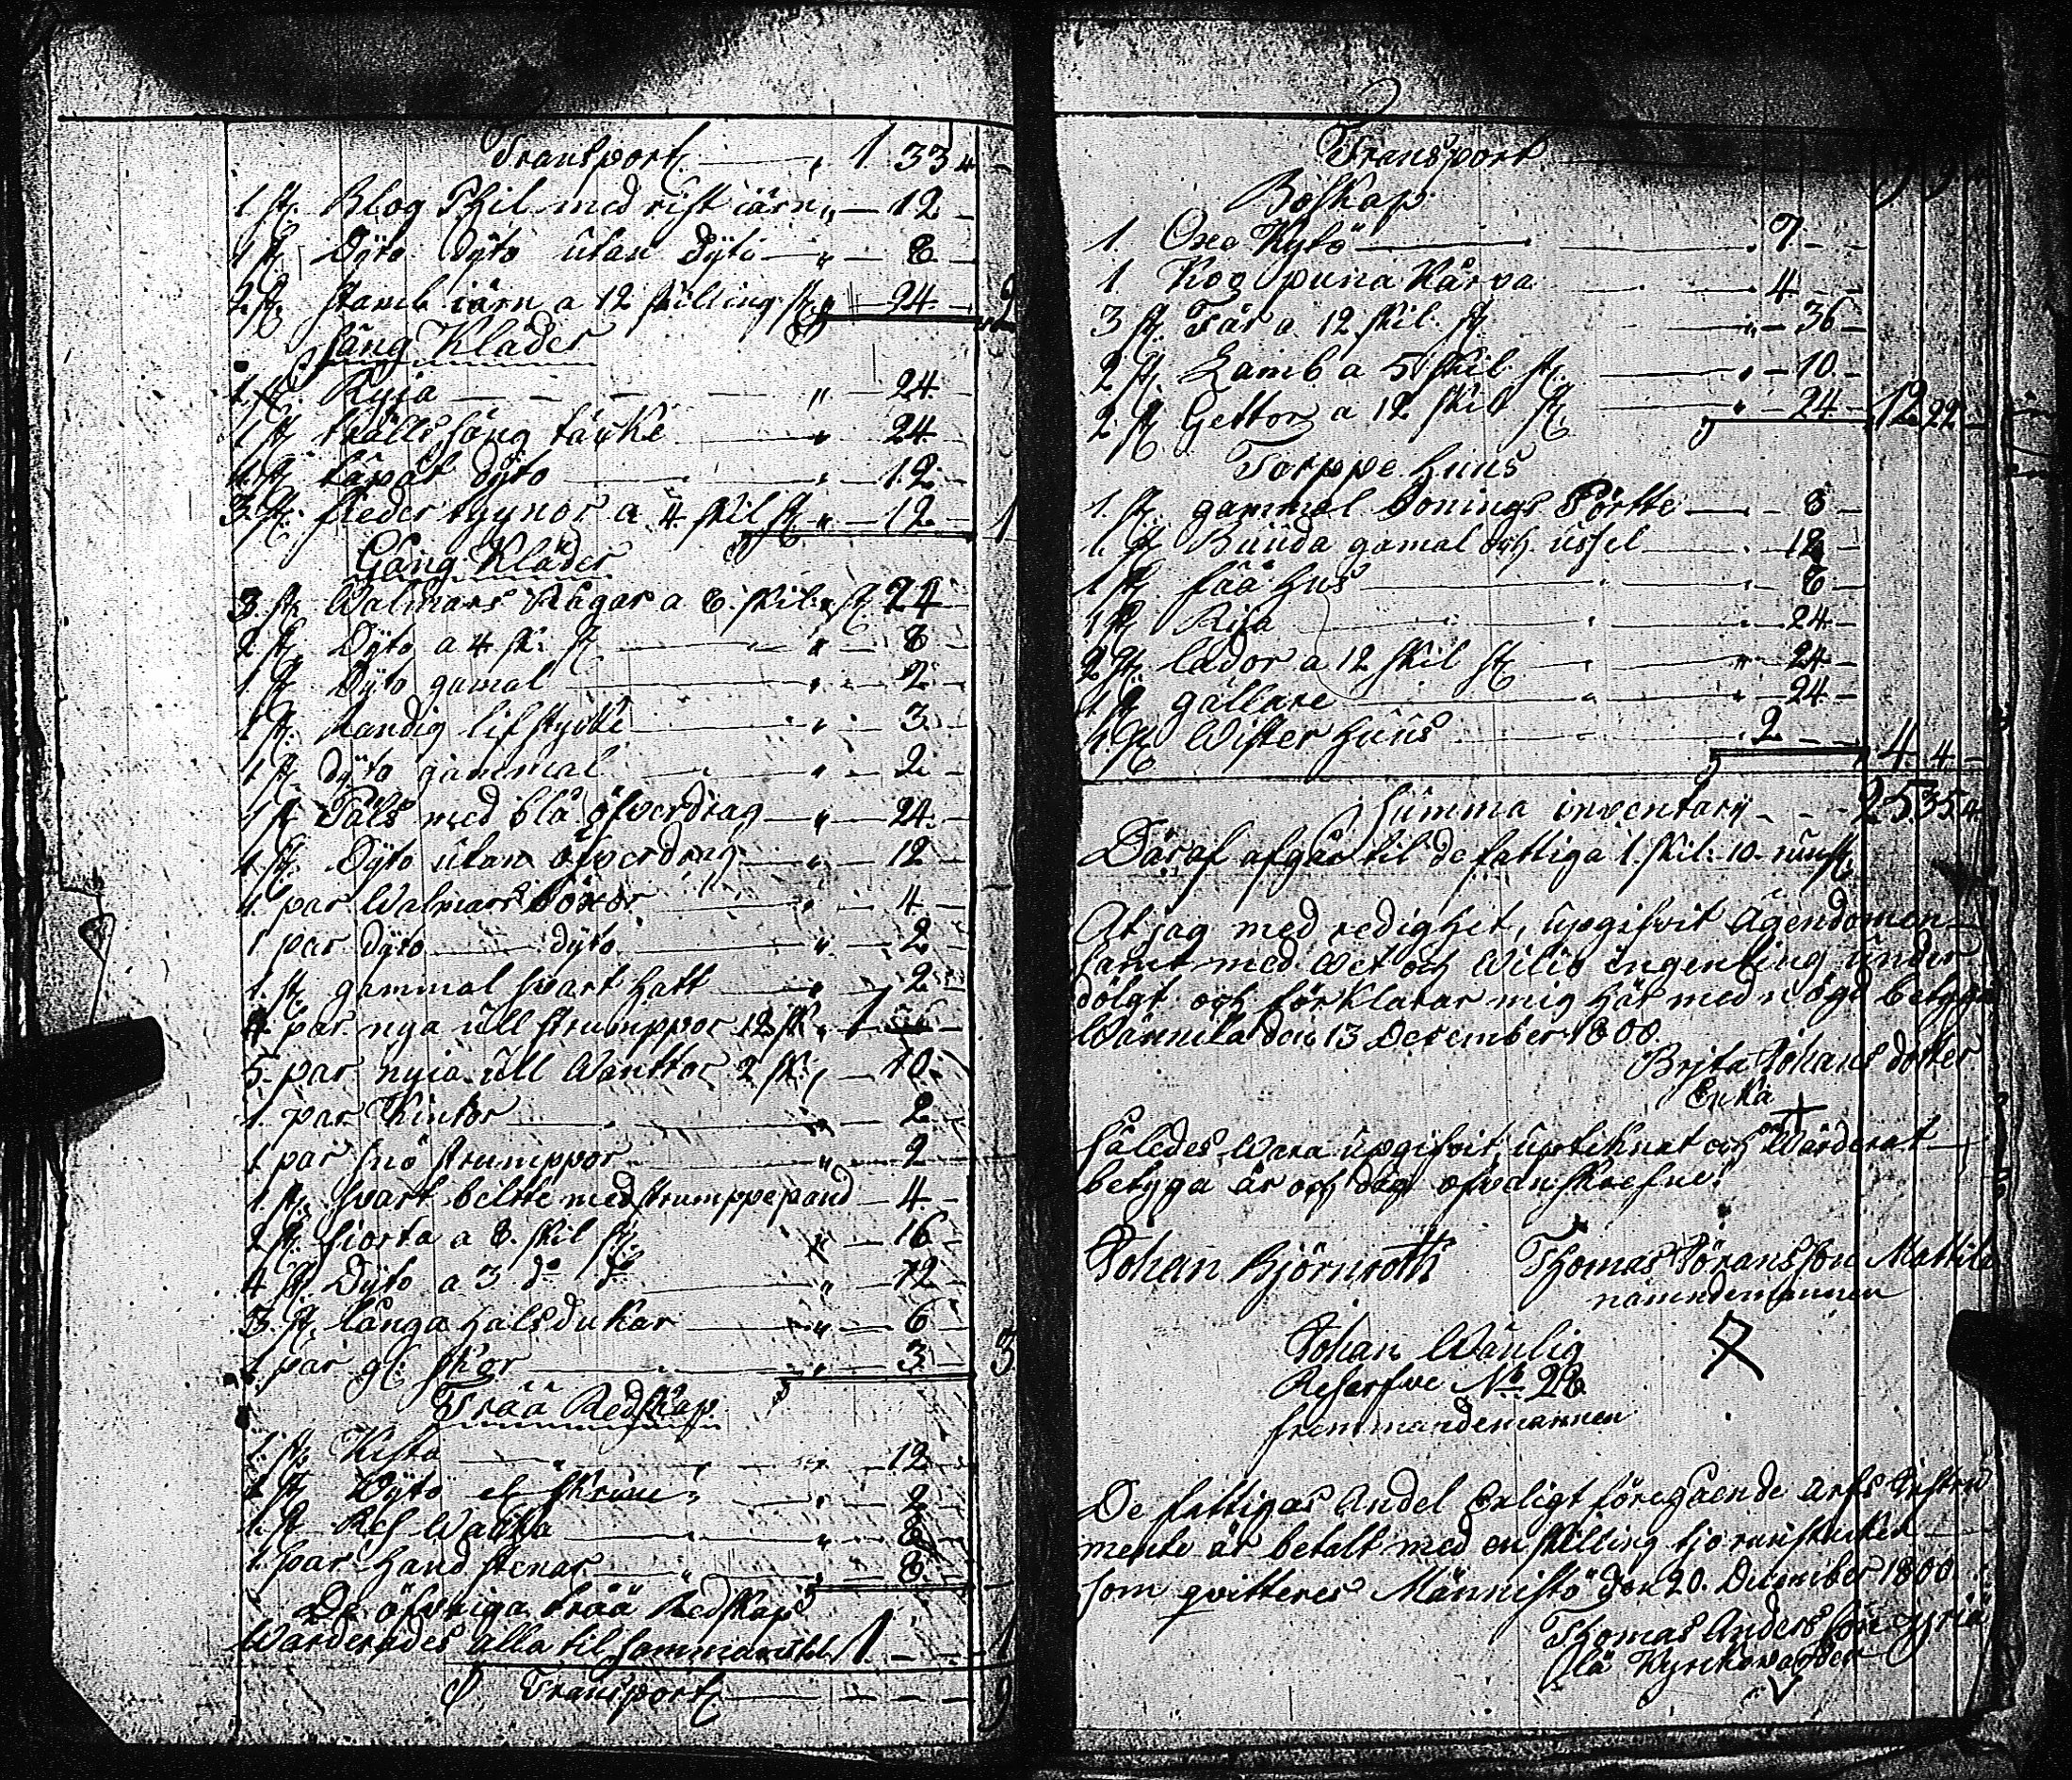 Transport 1 33 4
1 st. Blog Thil med rist iärn 12
1 st Dÿto dÿto utan Dÿto 8
2 st stamb iärn a 12 skilling st 24 2
Säng Kläder
1 st. Ryia 24
1 st trälls säng täcke 24
1 st tåpåt dÿto 12
3 st. fieder dyynor a 4 skil st 12 1
Gång Kläder
3. st Walmars Råcgar a 8. skil. st 24
2 st Dÿto a 4 sk: st 8
1. st Dÿto gamal 2
1 st. Randig lifstycke 3
1 st dÿto gammal 2
1 st Päls med blå öfverdrag 24
1 st. Dÿto utan öfverdrag 12
1. par Walmars Böxor 4
1 par dÿto dÿto 2
1. st. gammal svart hatt 2
4 par nya ull strumppor 12 sk. 1
5. par nyia ull Wanttor 2 sk. 10
1. par Kintor 2
1 par snö strumppor 2
1. st. svart beltte med strumppepand 4
2 st. siorta a 8. skil st 16
4 st Dÿto a 3 do do 12
3. st. långa halsdukar 6
1 par gl. skor 3 3
Trää Redskap
1. st. Kista 12
1 st Dÿto el skrin 2
1. st Res Wacka 8
1. par hand stenar 8
De öfvriga trää Redskap
Wärderades alla til sammans til 1 1
Transport 9
Transport 9 9
Boskap
1. Oxe Kytö 7
1 Koo puna Kårva 4
3 st. Får a 12 skil. st 36
2 st. Lamb a 5 skil. st 10
2 st Gettor a 12 skil st 24 12 22
Torppe huus
1. st. gammal bonings Pörtte 8
1. st Buuda gamal och ussel 12
1 st. fää hus 8
1 st Riia 24
2 st lador a 12 skil st 24
1 st gällare 24
1. st Wister huus 2 4 4
Summa inventary 25 35 4
Däraf afgår til de fattiga 1. skil: 10. runst
At jag med redighet, upgifvit ägendomen
samt med Wet och Wilio ingenting under
dölgt och förklarar mig här med nögd betyga
Wännilä den 13 December 1800.
Brita Johans dotter
Enka
Således Wara upgifvit, uptiknat och Wärderat
betyga år och dag ofvanskrefne:
Johan Björnroth Thomas Göransson Mattila
nämndemannen
Johan Wänlig
Reserfve No 28
fremmandemannen
De fattigas Andel Enligt föregående arfs
mente är betalt med en skilling tjo runstucken
som qvitteres Männistö den 20. December 1800
Thomas Anders son yriä
Kyrckowärder